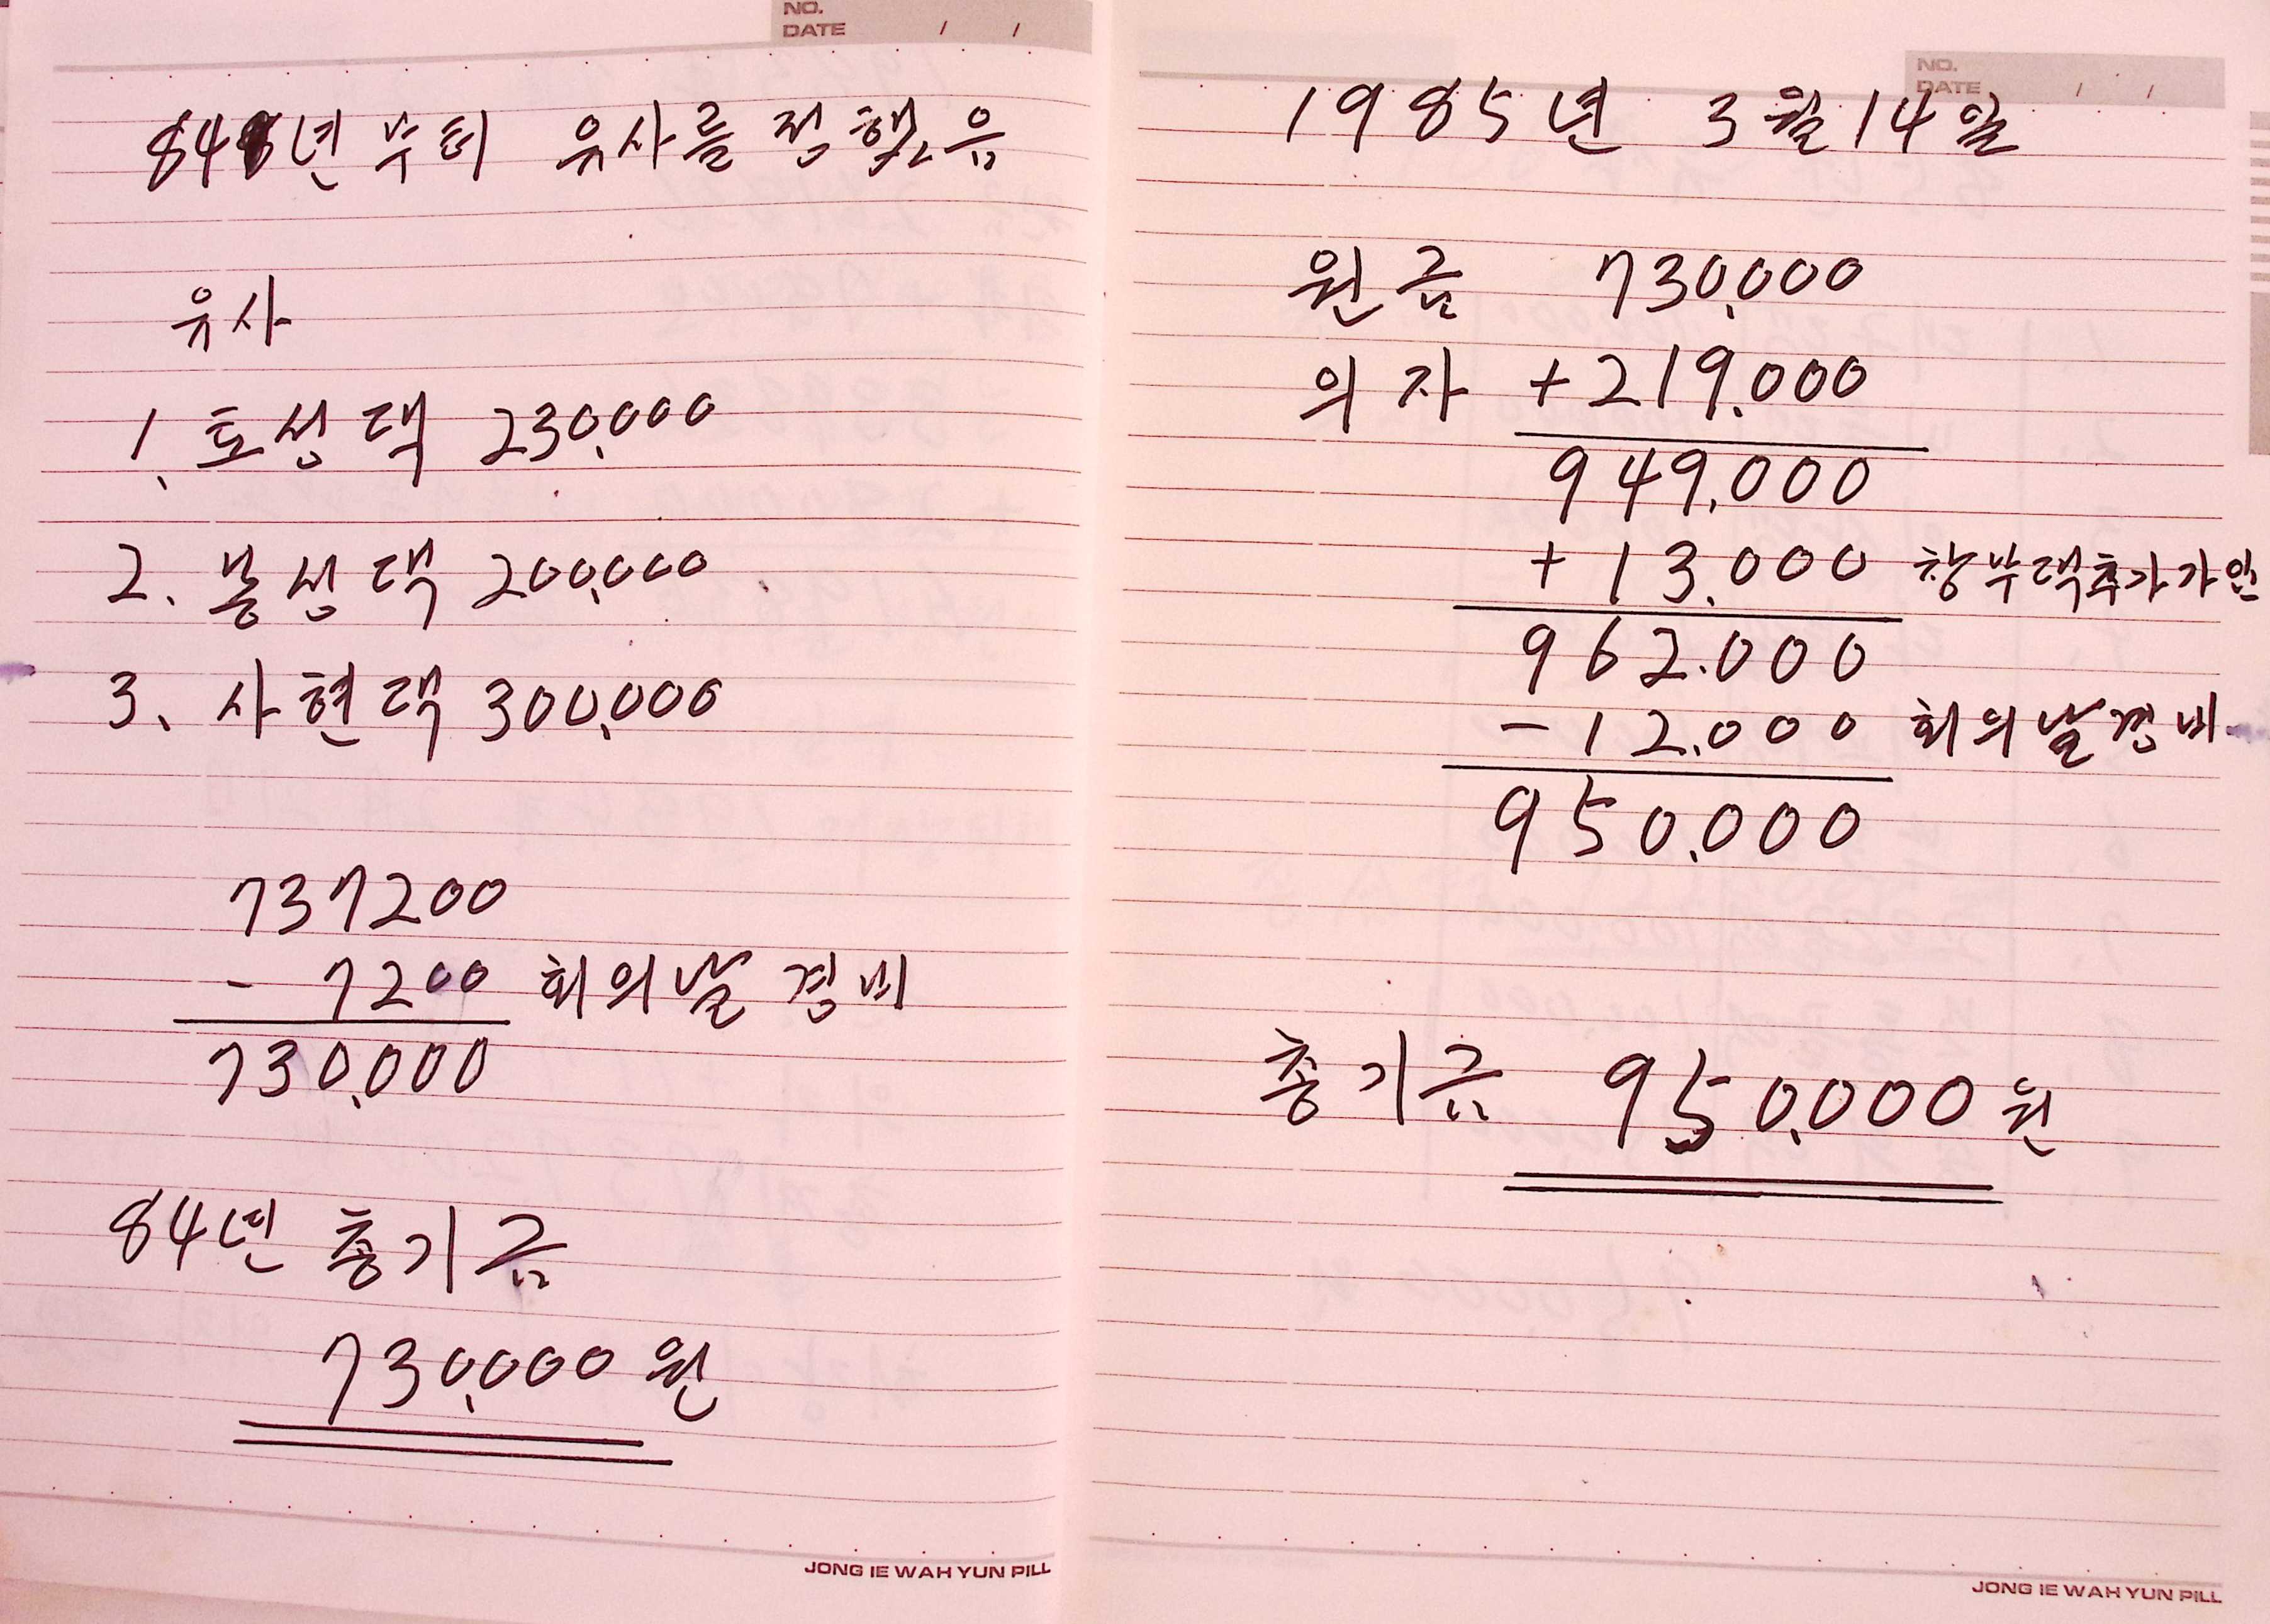 NO.
DATE / /
84년부터 유사를 정했음
유사
1. 토성댁 230,000
2. 봉성댁 200,000
3. 사현댁 300,000
737200
- 7200 회의날 경비
730,000
84년 총기금
730,000원
JONG IE WAH YUN PILL
NO.
DATE / /
1985년 3월 14일
원금 730,000
의자 +219.000
949.000
+13.000 창부댁추가가입
962.000
-12.000 회의날경비
950.000
총기금 950,000원
JONG IE WAH YUN PILL